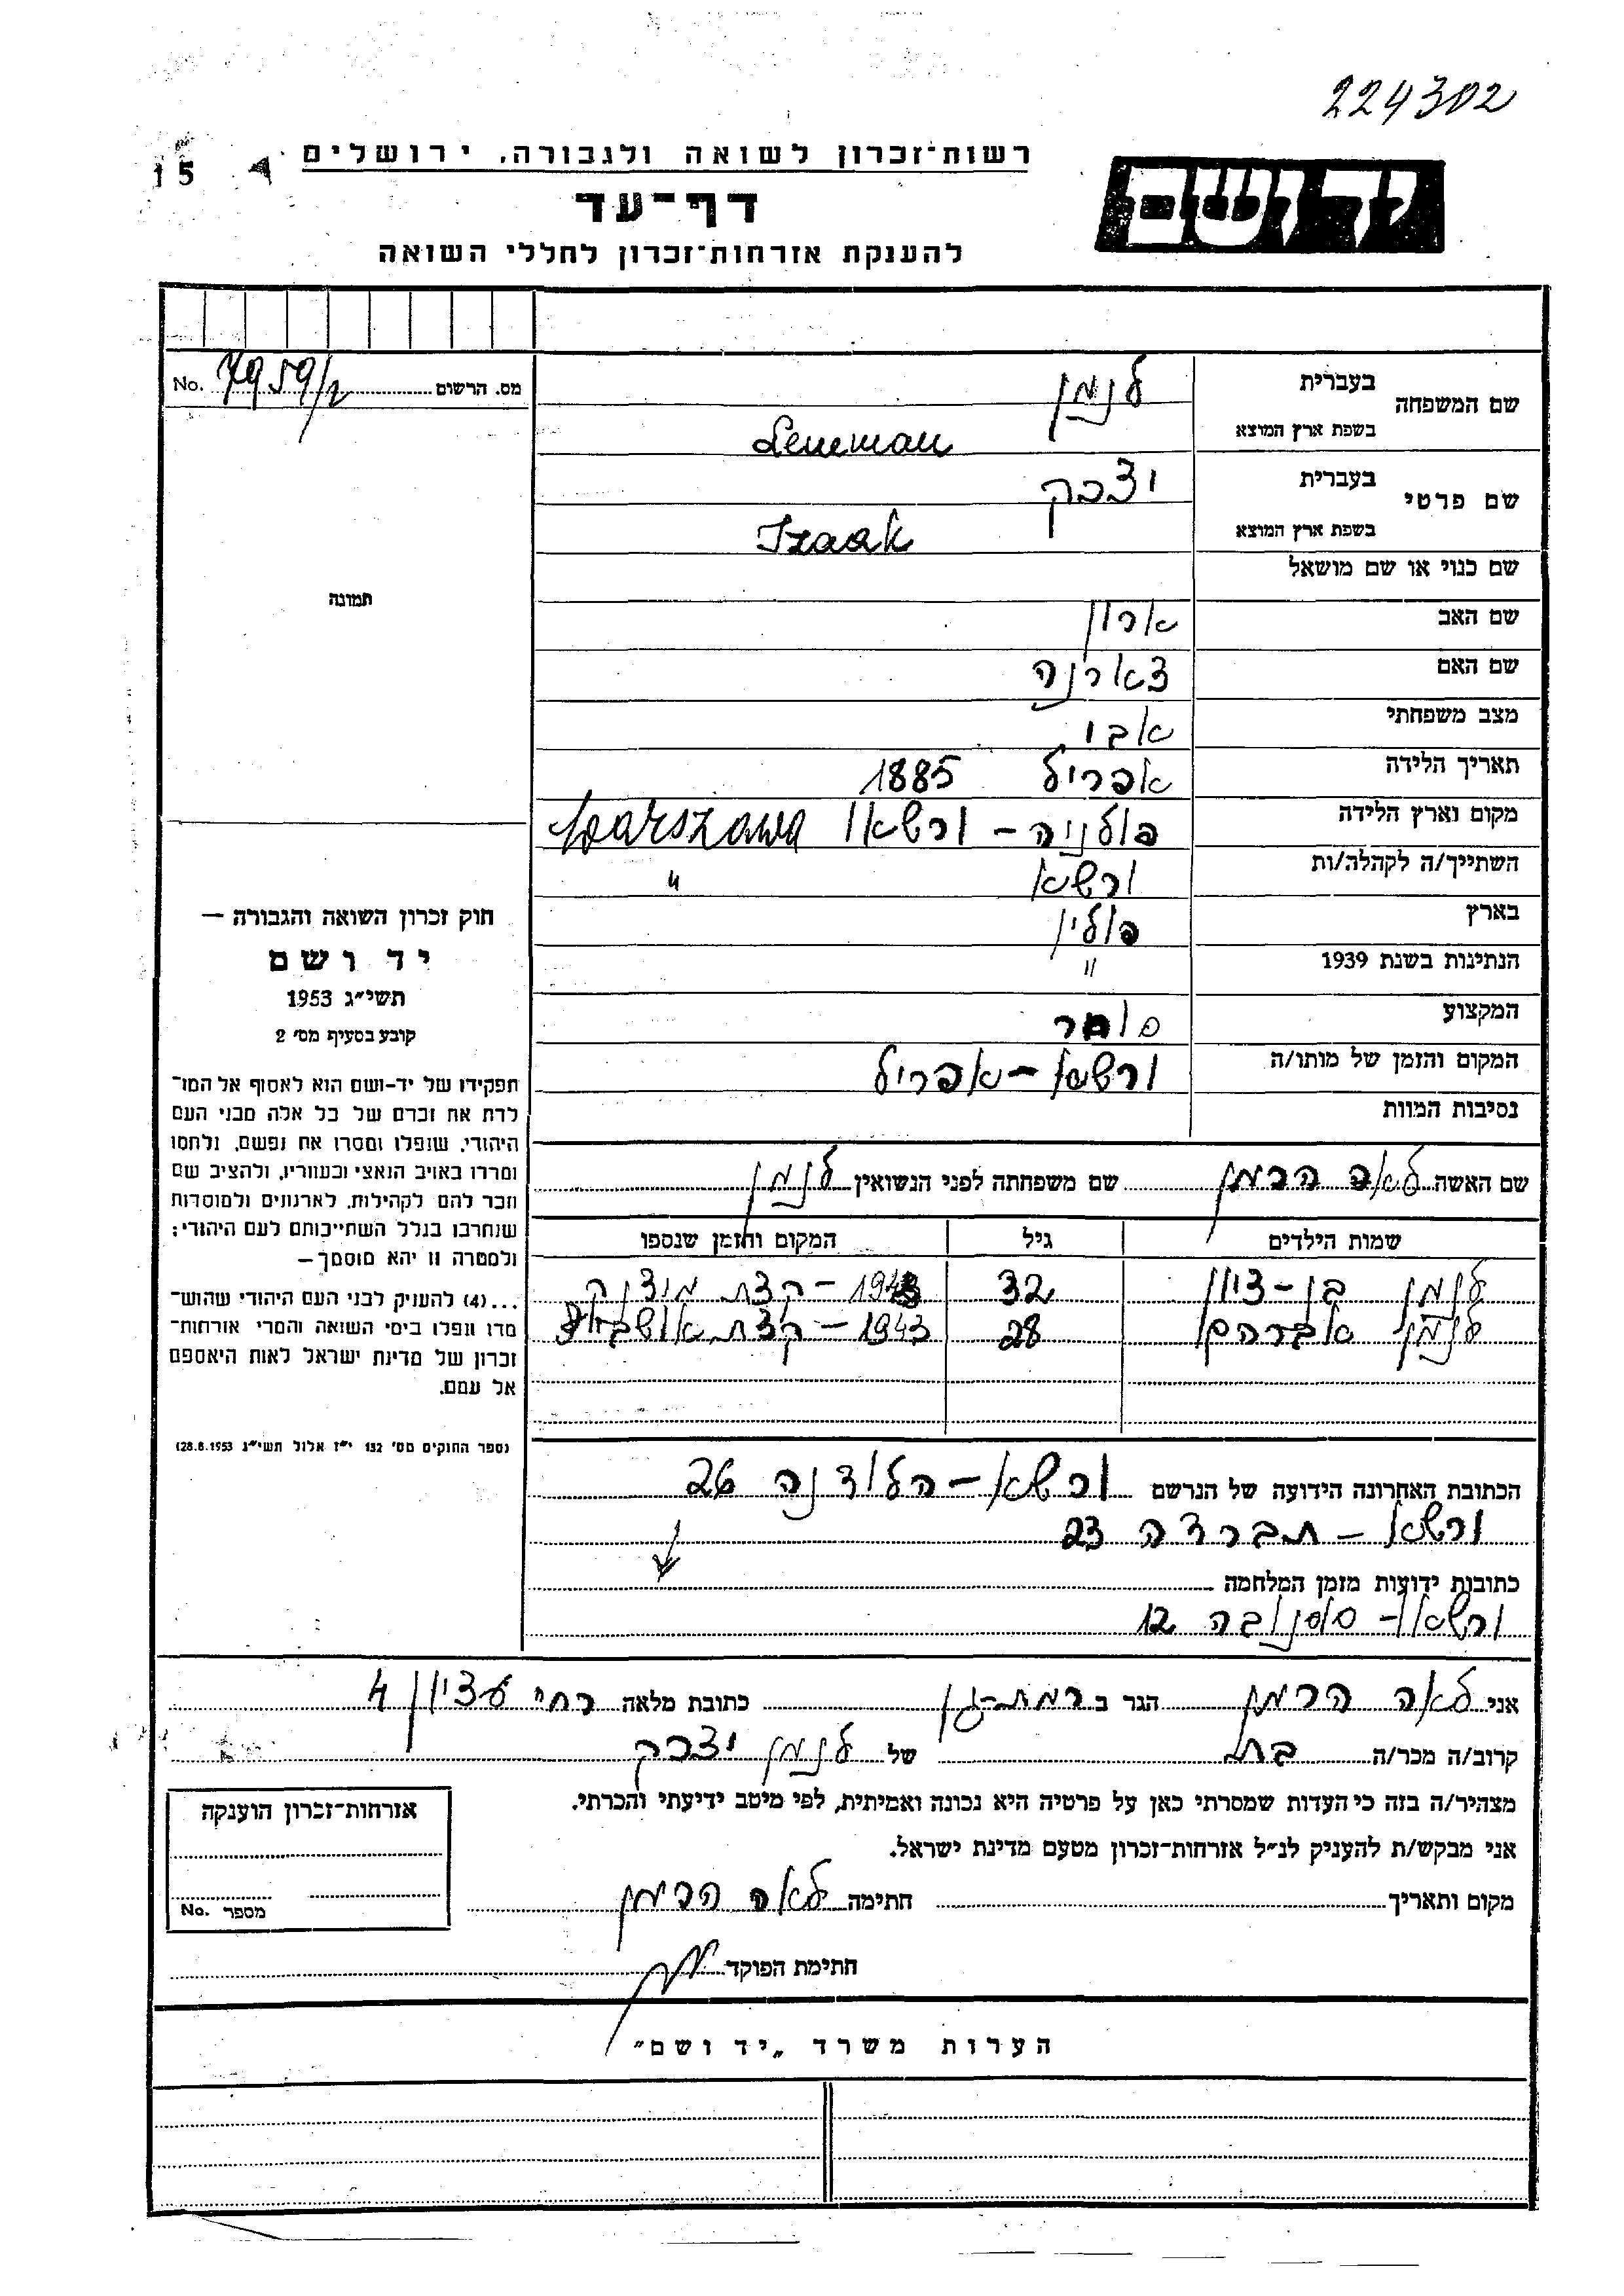 224302
רשות־זכרון לשואה ולגבורה, ירושלים
15
יד ושם
דף־עד
להענקת אזרחות־זכרון לחללי השואה
מס. הרשום 7959/2 No.
שם המשפחה בעברית לנמן
בשפת ארץ המוצא Leneman
שם פרטי בעברית יצחק
בשפת ארץ המוצא Izaak
שם כנוי או שם מושאל
תמונה
שם האב ארון
שם האם צארנה
מצב משפחתי
תאריך הלידה אפריל 1885
מקום וארץ הלידה פולניה – ורשא Warszawa
השתייך/ה לקהלה/ות ורשא "
בארץ פולין
הנתינות בשנת 1939 "
המקצוע סוחר
המקום והזמן של מותו/ה ורשא – אפריל
נסיבות המוות
שם האשה לאה הרמן שם משפחתה לפני הנשואין לנמן
שמות הילדים גיל המקום והזמן שנספו
לנמן בן–ציון 32 1943 –
לנמן אברהם 28 1943 –
הכתובת האחרונה הידועה של הנרשם ורשא – 26
ורשא – טברדה 23
כתובות ידועות מזמן המלחמה
ורשא – סוסנובה 12
חוק זכרון השואה והגבורה –
יד ושם
תשי״ג 1953
קובע בסעיף מס׳ 2
תפקידו של יד-ושם הוא לאסוף אל המו־
לדת את זכרם של כל אלה מבני העם
היהודי, שנפלו ומסרו את נפשם, נלחמו
ומרדו באויב הנאצי ובעוזריו, ולהציב שם
וזכר להם לקהילות, לארגונים ולמוסדות
שנחרבו בגלל השתייכותם לעם היהודי;
ולמטרה זו יהא מוסמך –
...(4) להעניק לבני העם היהודי שהוש־
מדו ונפלו בימי השואה והמרי אזרחות־
זכרון של מדינת ישראל לאות היאספם
אל עמם.
(ספר החוקים מס׳ 132 י״ז אלול תשי״ג 28.8.1953)
אני לאה הרמן הגר ב רמת-גן כתובת מלאה רח׳ עציון 4
קרוב/ה מכר/ה בת של לנמן יצחק
מצהיר/ה בזה כי העדות שמסרתי כאן על פרטיה היא נכונה ואמיתית, לפי מיטב ידיעתי והכרתי.
אני מבקש/ת להעניק לנ״ל אזרחות־זכרון מטעם מדינת ישראל.
מקום ותאריך חתימה לאה הרמן
חתימת הפוקד
אזרחות־זכרון הוענקה
מספר No.
הערות משרד „יד ושם״